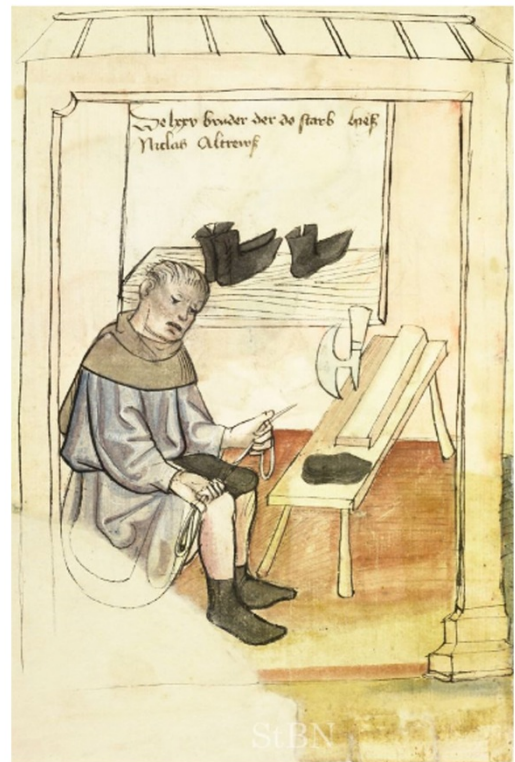 De lxxv bruder der do starb hieß
Niclas Altrewß
StBN